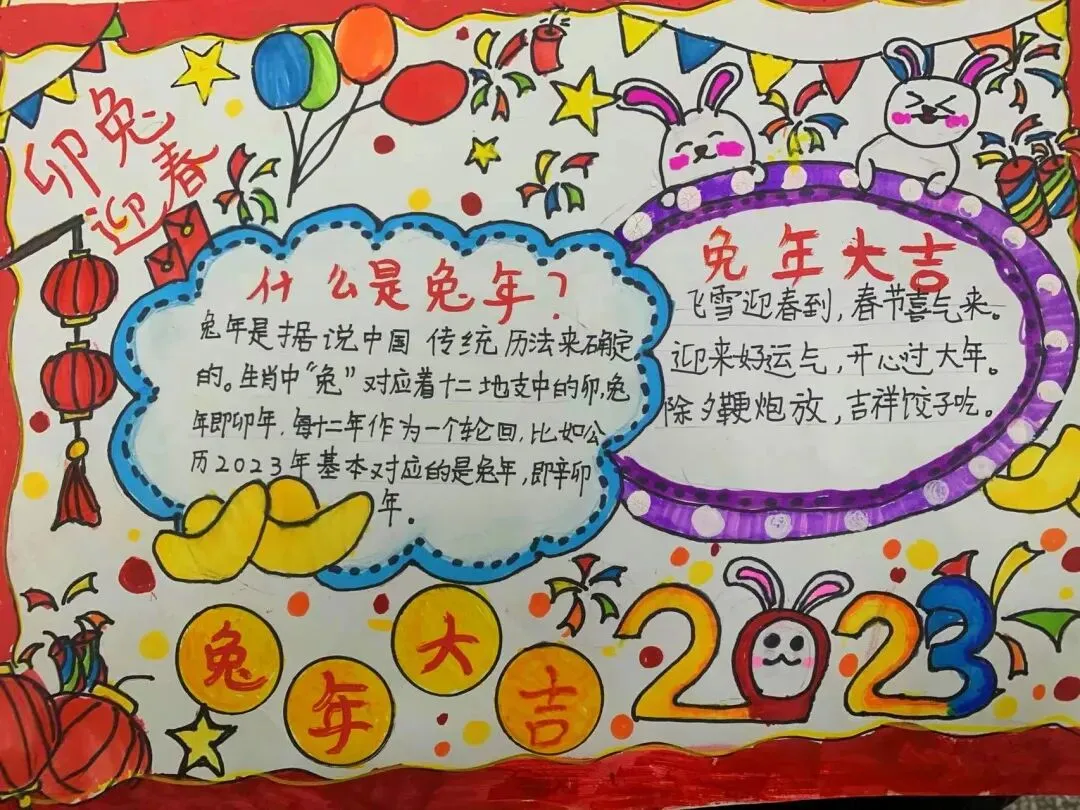 卯兔
迎春
什么是兔年?
兔年是据说中国传统历法来确定
的。生肖中“兔”对应着十二地支中的卯,兔
年即卯年,每十二年作为一个轮回,比如公
历2023年基本对应的是兔年,即辛卯
年。
兔年大吉
飞雪迎春到,春节喜气来。
迎来好运气,开心过大年。
除夕鞭炮放,吉祥饺子吃。
兔年大吉
2023